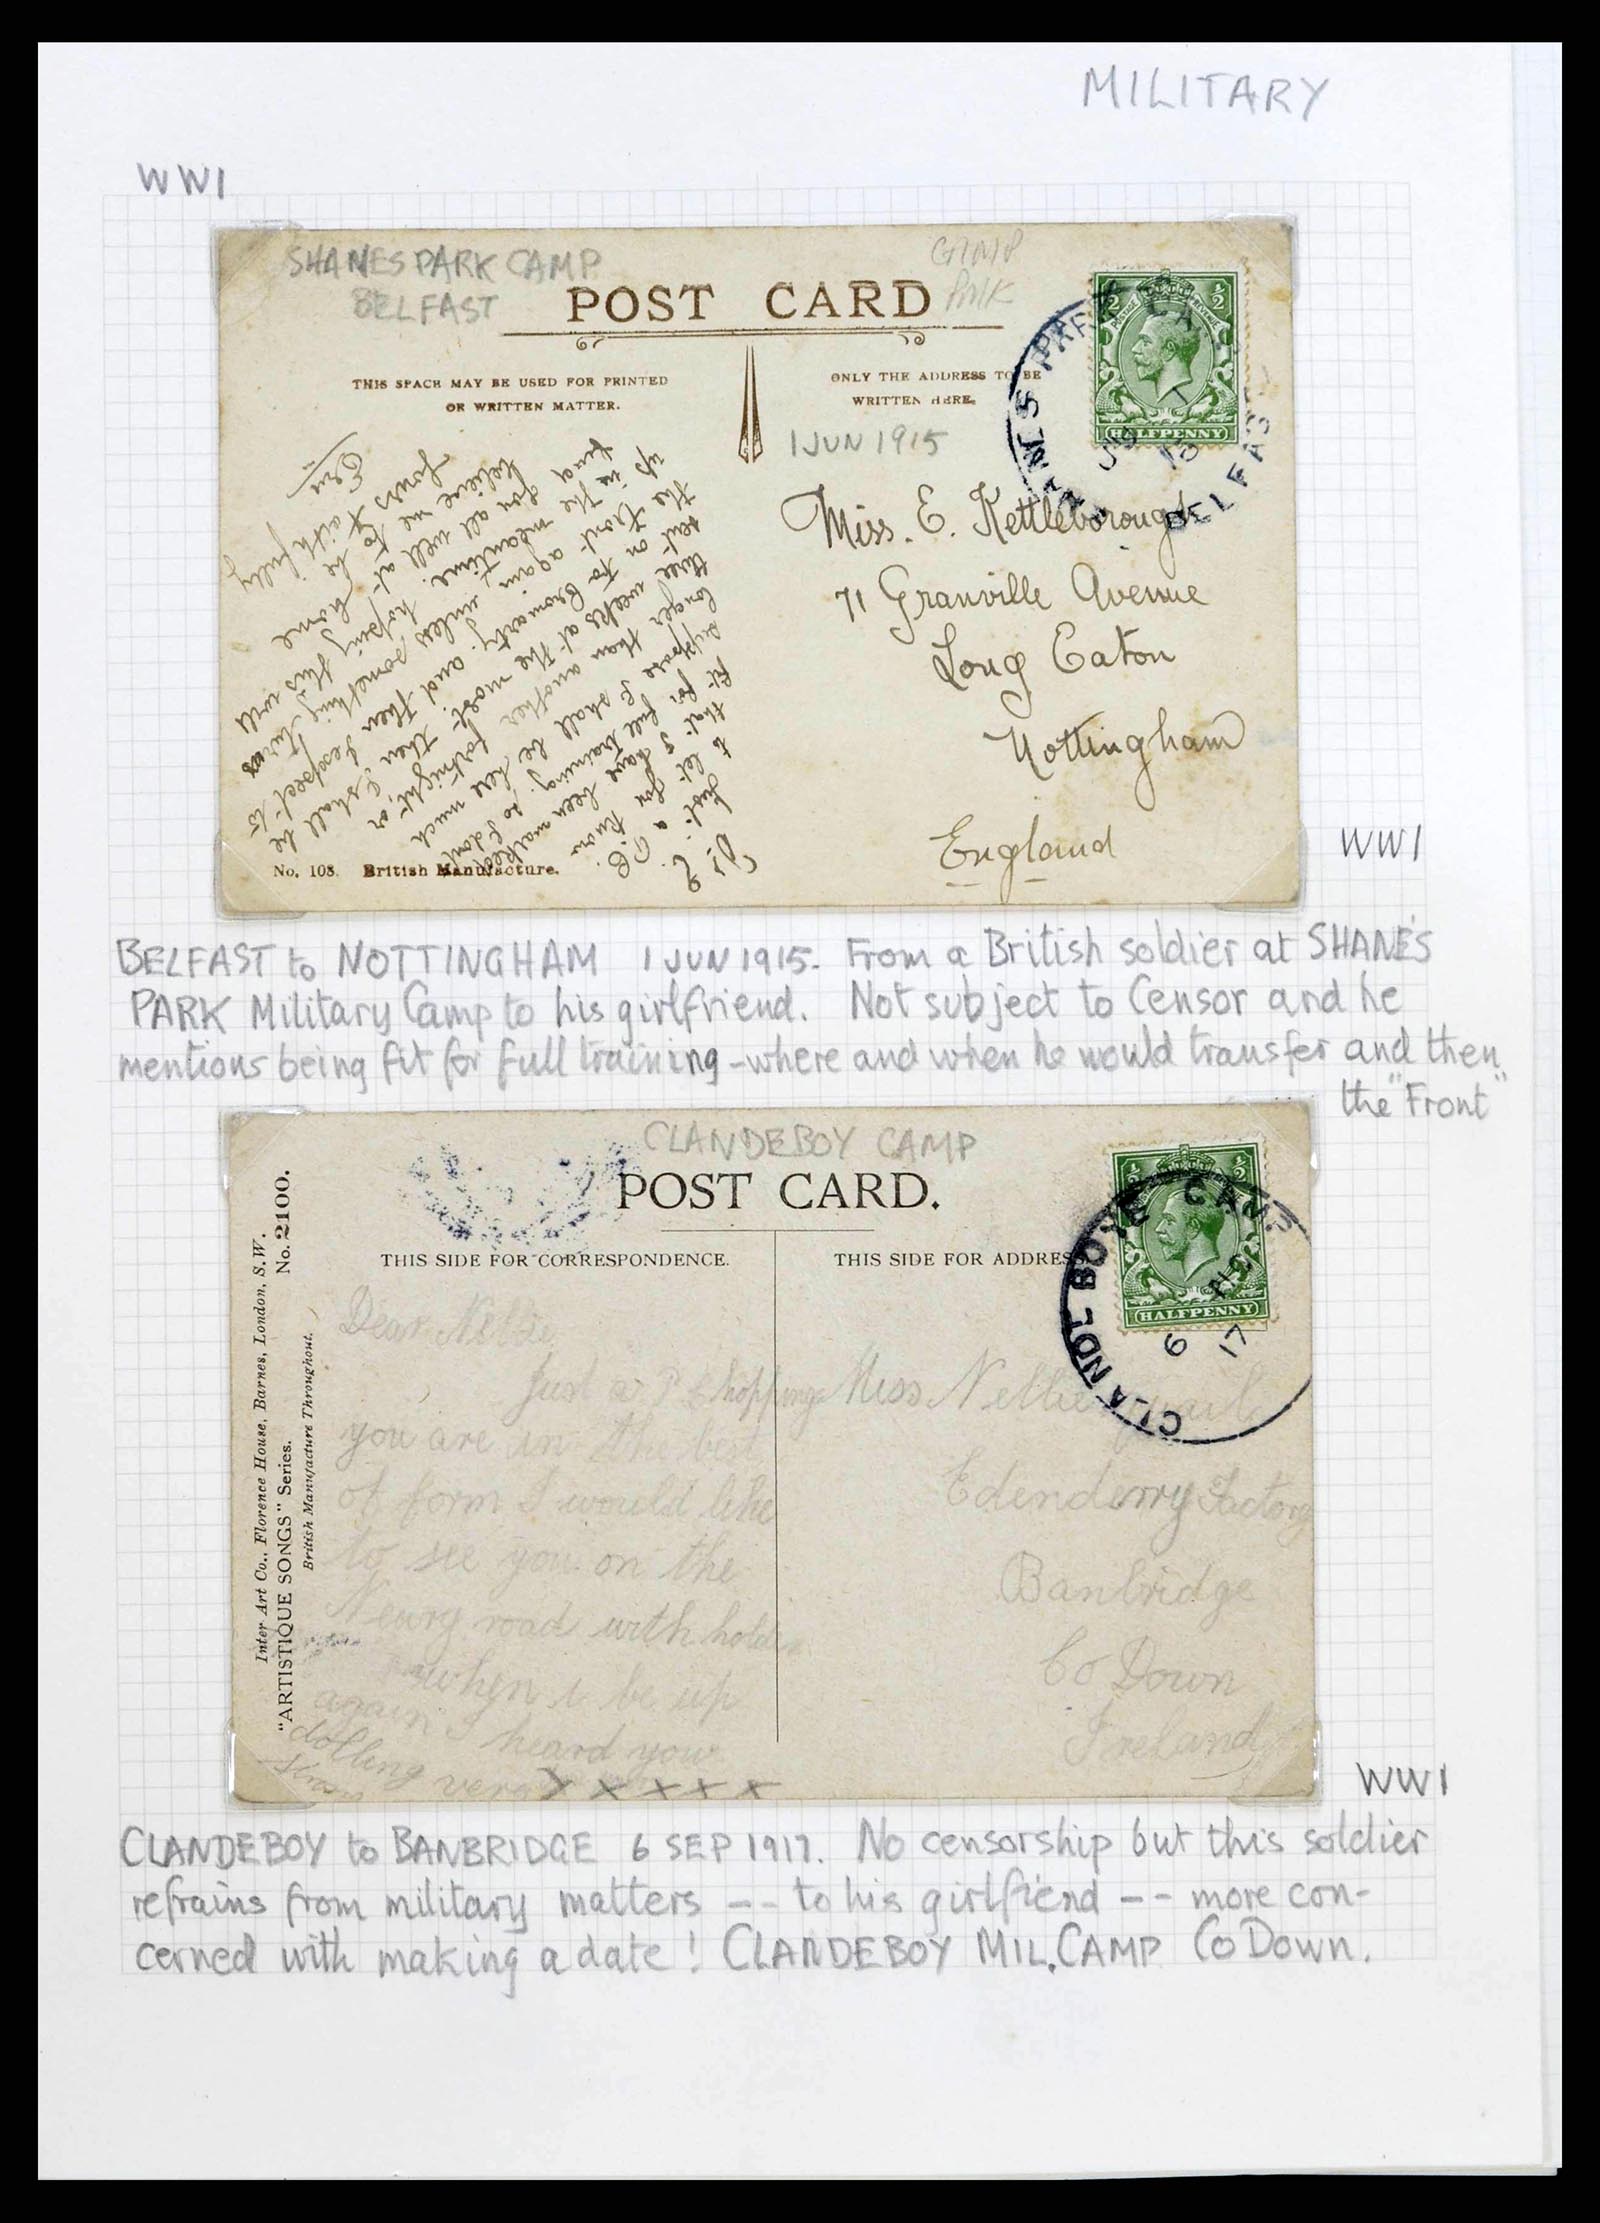 MILITARY
WW1
SHANES PARK CAMP
BELFAST
CAMP
PMK
POST CARD
THIS SPACE MAY BE USED FOR PRINTED
OR WRITTEN MATTER.
ONLY THE ADDRESS TO BE
WRITTEN HERE.
1 JUN 1915
S PARK CA
BELFAST
HALFPENNY
Dr. E.
Just a P.C.
to let you know
that I have been marked
fit for full training. So I dont
suppose I shall be here much
longer than another fortnight, or
three weeks at the most. then I shall be
sent on to Cromarty. and then I expect to
the Front again unless something turns
up in the meantime. hoping this will
find you all well at home
believe me to be
Yours faithfully
Ern
Miss. E. Kettleborough
71 Granville Avenue
Long Eaton
Nottingham
England
No. 103. British Manufacture.
WW1
BELFAST to NOTTINGHAM 1 JUN 1915. From a British soldier at SHANE'S
PARK Military Camp to his girlfriend. Not subject to Censor and he
mentions being fit for full training - where and when he would transfer and then
the "Front"
CLANDEBOY CAMP
POST CARD.
THIS SIDE FOR CORRESPONDENCE.
THIS SIDE FOR ADDRESS
CLANDEBOYE CAMP
6
17
HALFPENNY
Inter Art Co., Florence House, Barnes, London, S.W.
"ARTISTIQUE SONGS" Series. No. 2100.
British Manufacture Throughout.
Dear Nellie
Just a P C hopping
you are in the best
of form I would like
to see you on the
Newry road with
when i be up
again I heard your
very
x x x x x
Miss Nellie
Edenderry Factory
Banbridge
Co Down
Ireland
WW1
CLANDEBOY to BANBRIDGE 6 SEP 1917. No censorship but this soldier
refrains from military matters -- to his girlfiend -- more con-
cerned with making a date! CLANDEBOY MIL. CAMP Co DOWN.